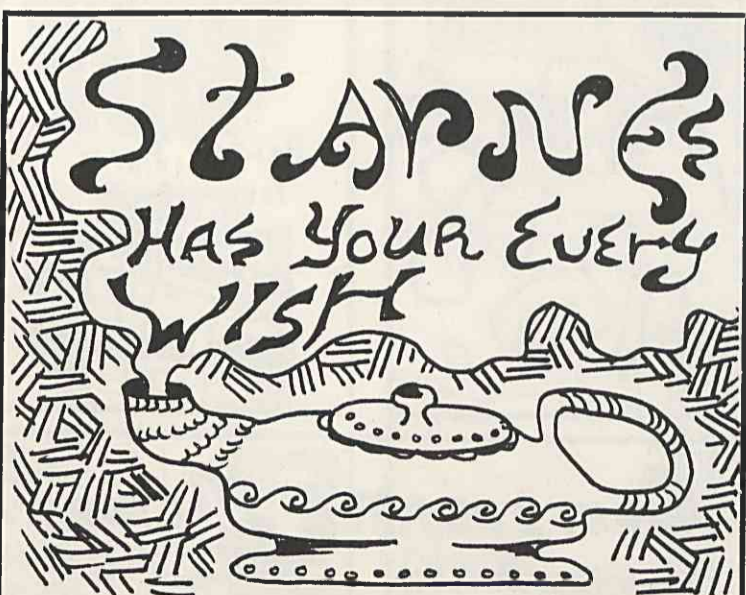 STARNES
HAS YOUR EVERY
WISH